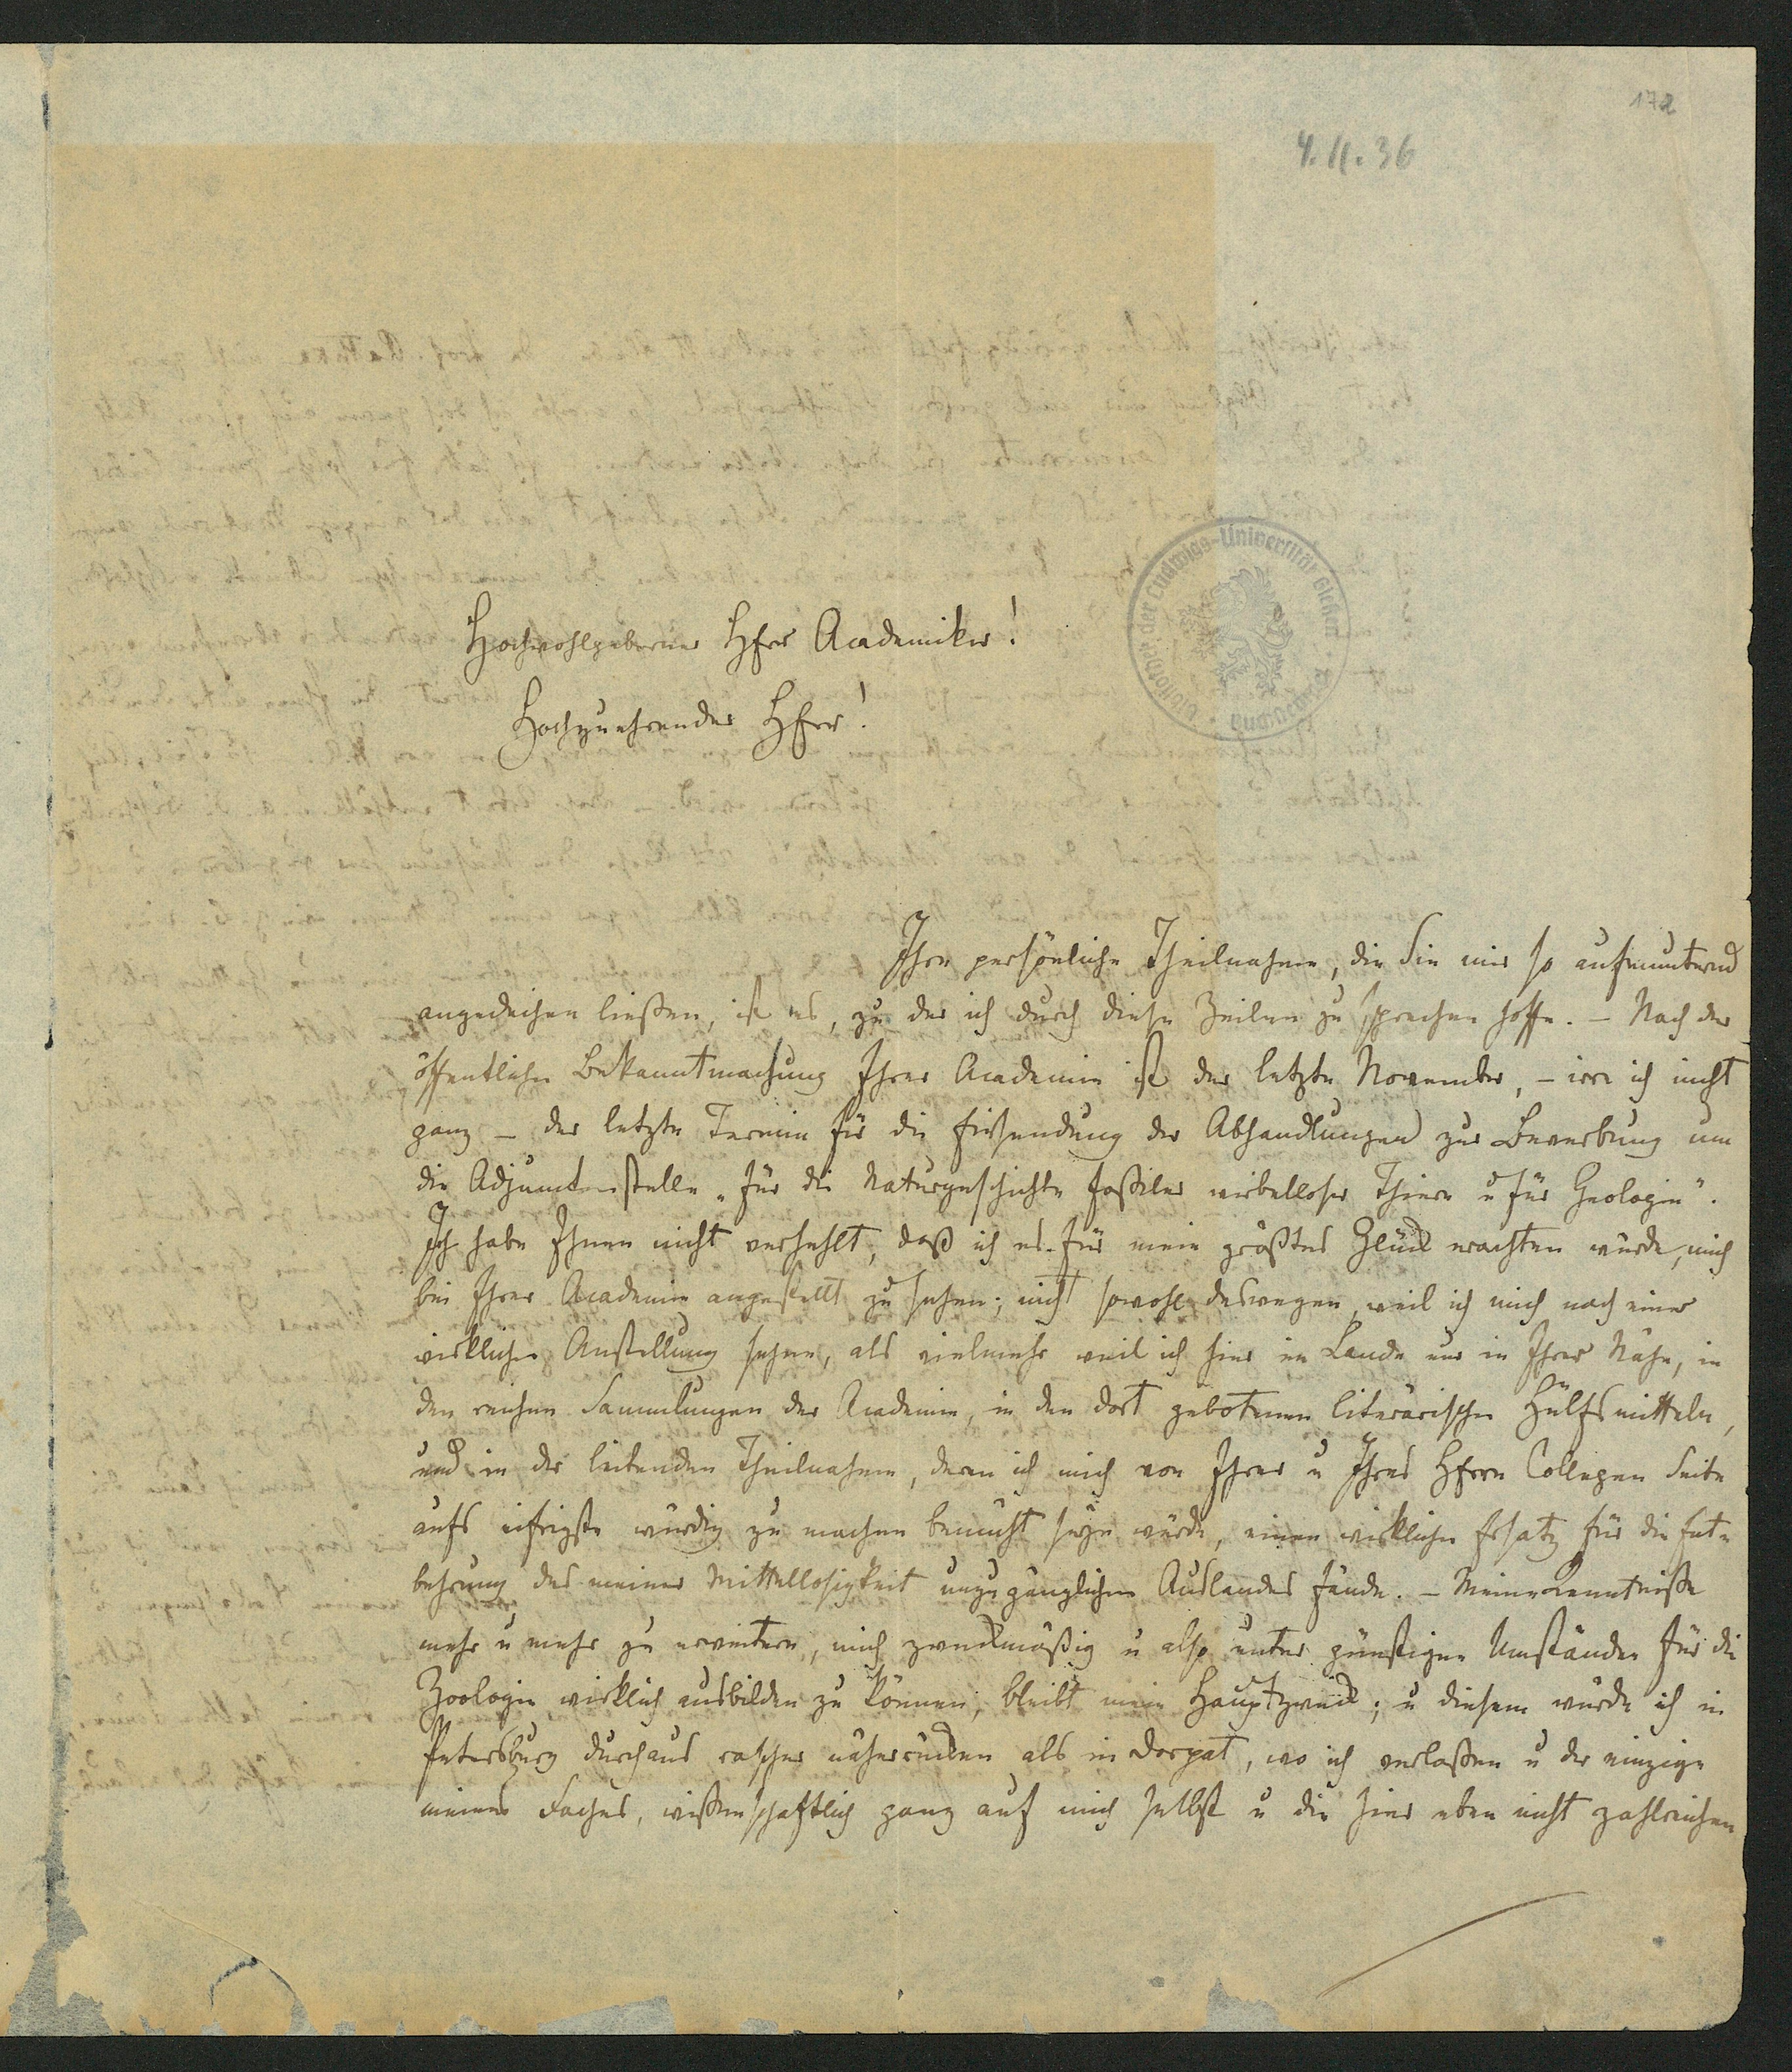 172
4. 11. 36
Bibliothek der Ludwigs-Universität Gießen
Hochwohlgeborner Hherr Academiker!
Hochzuehrender Hherr!
Ihre persönliche Theilnahme, die Sie mir so aufmunternd
angedeihen ließen, ist es, zu der ich durch diese Zeilen zu sprechen hoffe. – Nach der
öffentlichen Bekanntmachung Ihrer Academie ist der letzte November, – irre ich nicht
ganz – der letzte Termin für die Einsendung der Abhandlungen zur Bewerbung um
die Adjunctenstelle „für die Naturgeschichte foßiler wirbelloser Thiere u für Geologie".
Ich habe Ihnen nicht verhehlt, daß ich es für mein größtes Glück erachten würde, mich
bei Ihrer Academie angestellt zu sehen; nicht sowohl deswegen, weil ich mich nach einer
wirklichen Anstellung sehne, als vielmehr weil ich hier im Lande nur in Ihrer Nähe, in
den reichen Sammlungen der Academie, in den dort gebotenen literärischen Hülfsmitteln,
und in der leitenden Theilnahme, deren ich mich von Ihrer u Ihres Hherrn Collegen Seite
aufs eifrigste würdig zu machen bemüht seyn würde, einen wirklichen Ersatz für die Ent-
behrung des meiner Mittellosigkeit unzugänglichen Auslandes fände. – Meine Kenntniße
mehr u mehr zu erweitern, mich zweckmäßig u also unter günstigen Umständen für die
Zoologie wirklich ausbilden zu können, bleibt mein Hauptzweck; u diesem würde ich in
Petersburg durchaus rascher näherrücken als in Dorpat, wo ich verlaßen u der einzige
meines Faches, wißenschaftlich ganz auf mich selbst u die hier eben nicht zahlreichen